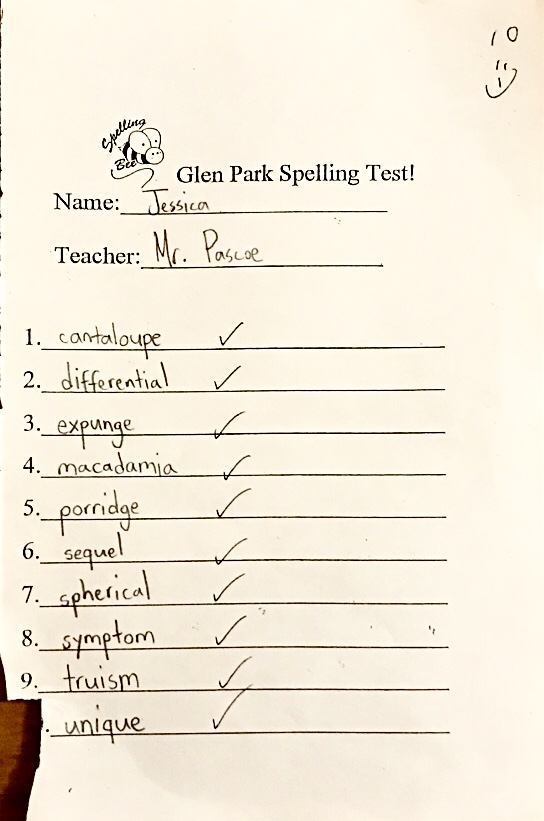 10
Spelling
Bee
Glen Park Spelling Test!
Name: Jessica
Teacher: Mr. Pascoe
1. cantaloupe ✓
2. differential ✓
3. expunge ✓
4. macadamia ✓
5. porridge ✓
6. sequel ✓
7. spherical ✓
8. symptom ✓
9. truism ✓
. unique ✓